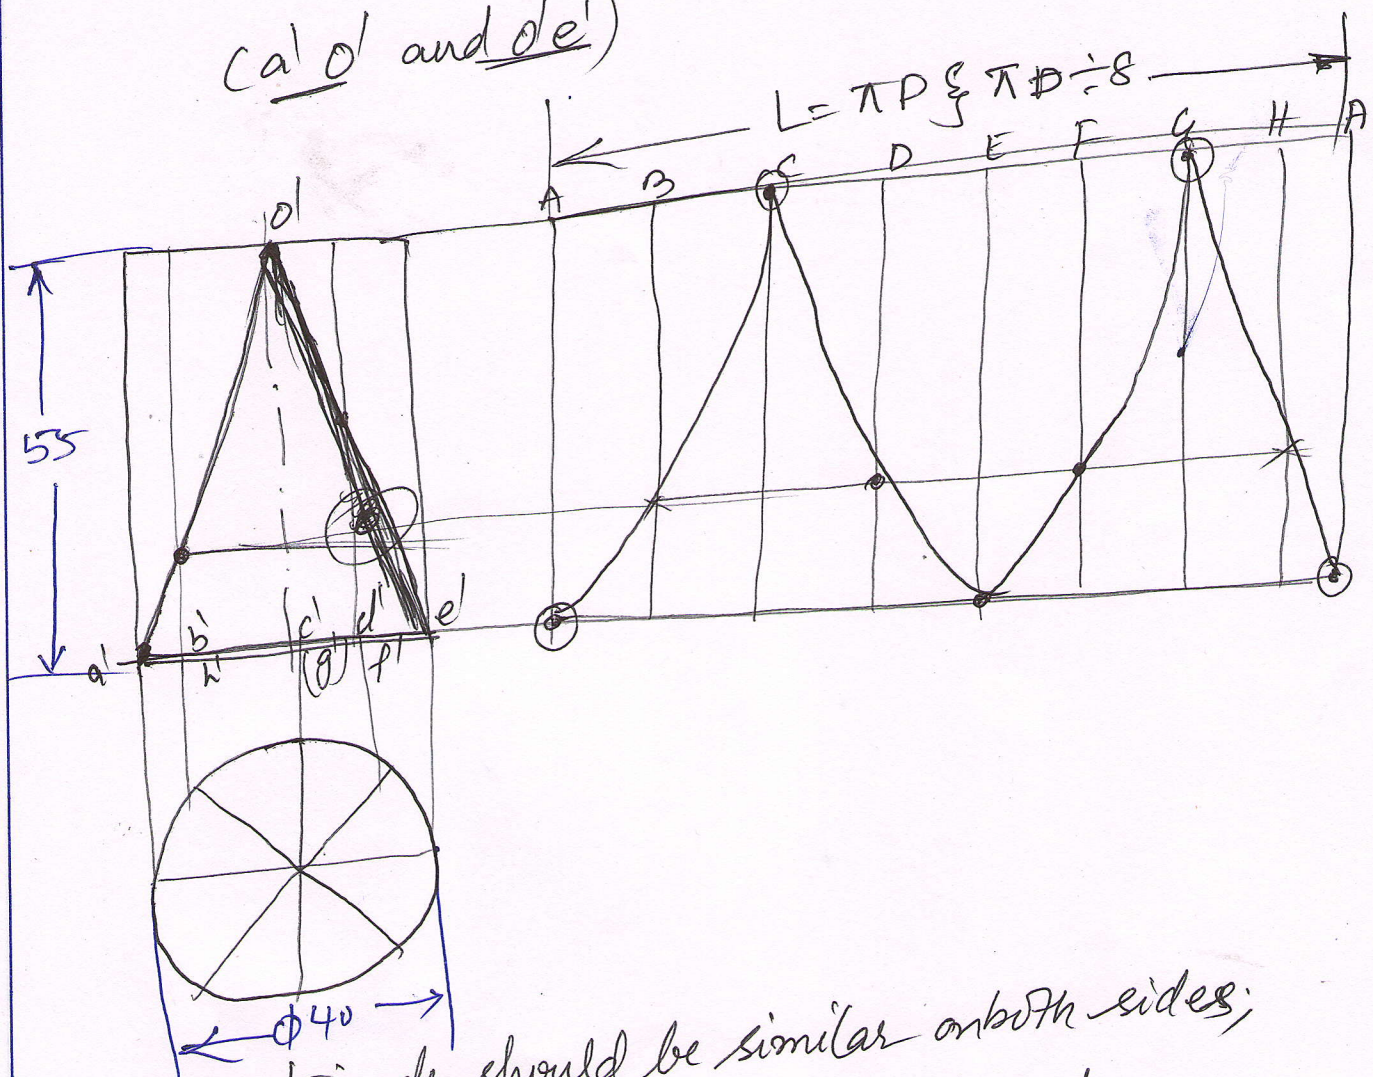 (a' o' and o'e')
L = πD { πD ÷ 8
A B C D E F G H A
o'
55
a' b' c' d' e'
h' (g') f'
φ40
should be similar on both sides;